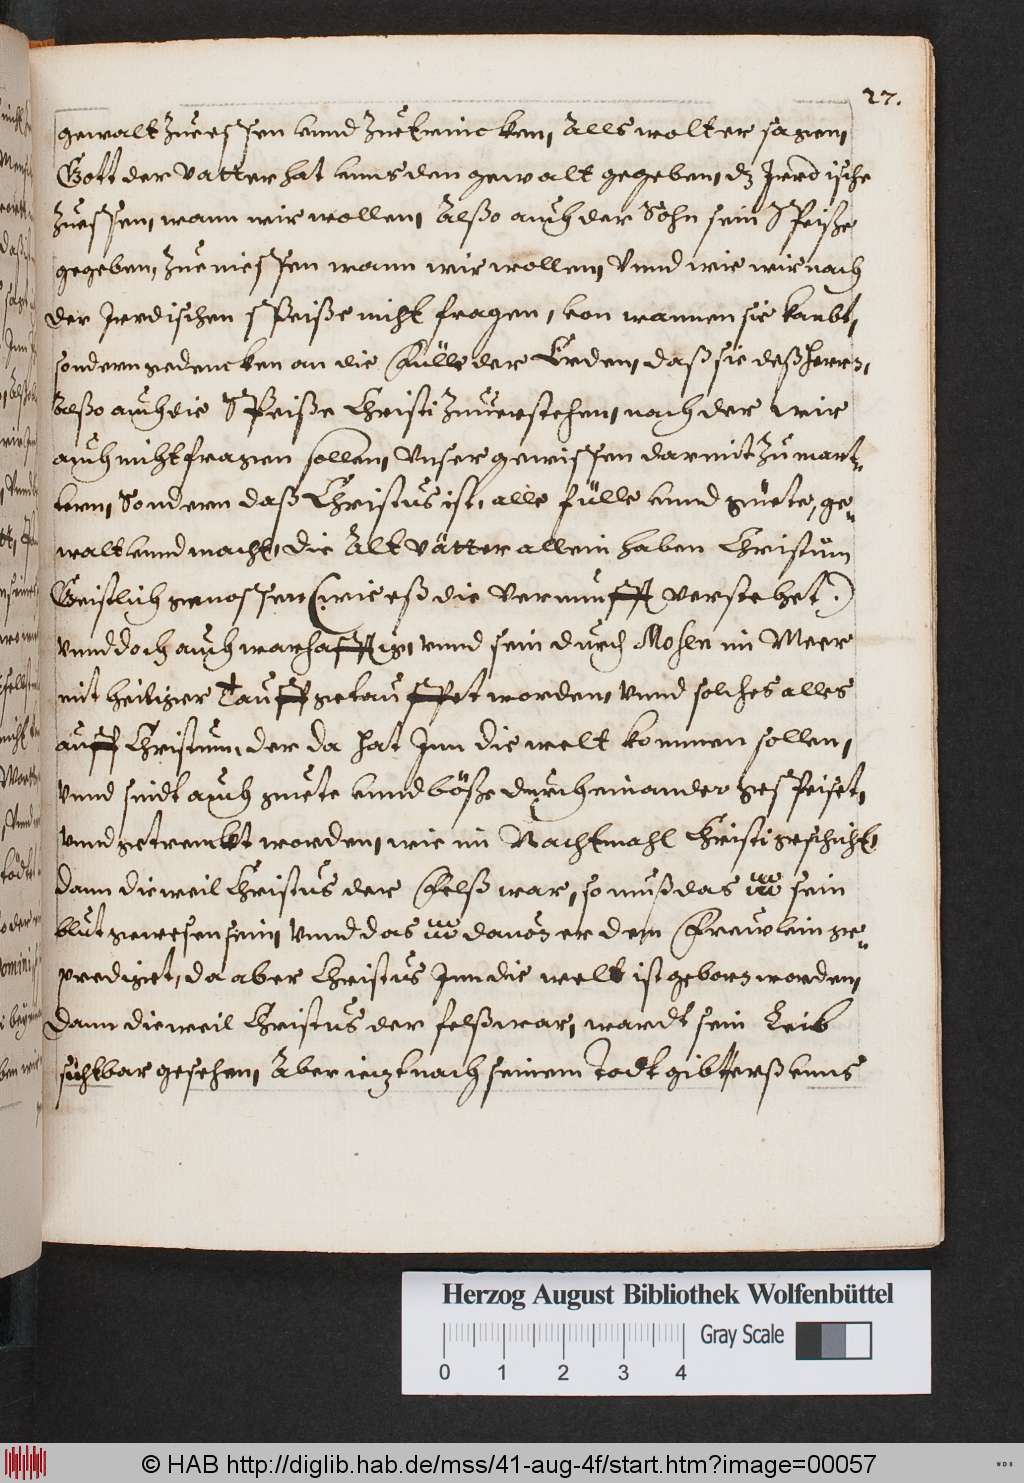 27.
gewalt Zueessen vnnd Zuetrincken, Alls wolt er sagen,
Gott der Vatter hat vnns den gewalt gegeben, dz Irrdische
Zuessen, wann wir wollen, Alßo auch der Sohn sein Speiße
gegeben, Zueniessen wann wir wollen, Vnnd wie wir nach
der Irrdischen speiße nicht fragen, von wannen sie kombt,
sondern gedencken an die Fülle der Erden, daß sie deß herrn,
Alßo auch die Speiße Christi Zuuerstehen, nach der wir
auch nicht fragen sollen, Vnser gewissen darmit Zu mart-
tern, Sondern daß Christus ist, alle fülle vnnd guete, ge-
walt vnnd macht, die Alt Vätter allein haben Christum
Geistlich genossen (wie eß die Vernunfft verstehet.)
vnnd doch auch warhafftig, vnnd sein durch Mosen im Meer
mit heiliger Tauff getaufft worden, Vnnd solches alles
auff Christum, der da hat Inn die welt kommen sollen,
vnnd sindt auch guete vnnd böße durcheinander gespeiset,
vnnd getrenckt worden, wie im Nachtmahl Christi geschicht,
dann dieweil Christus der Felß war, so muß das sein
blut gewesen sein, Vnnd das dauon er dem Frewlein ge-
prediget, da aber Christus Inn die welt ist geborn worden,
Dann dieweil Christus der felß war, wardt sein Leib
sichtbar gesehen, Aber ietzt nach seinem todt gibt erß vnns
Herzog August Bibliothek Wolfenbüttel
Gray Scale
0 1 2 3 4
© HAB http://diglib.hab.de/mss/41-aug-4f/start.htm?image=00057